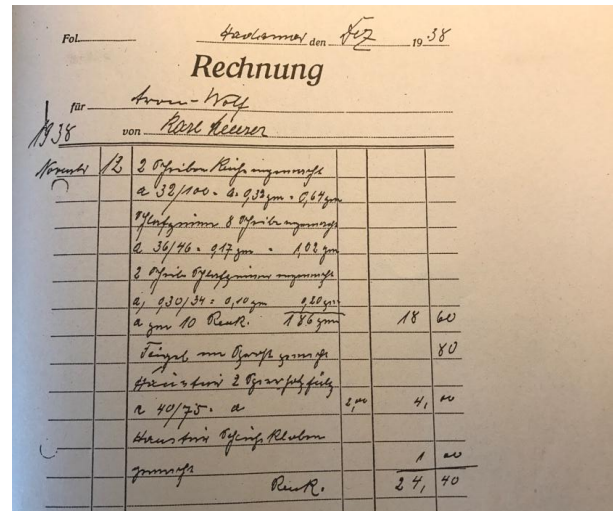 Fol. Hadamar den Dez 1938
Rechnung
für Aron-Wolf
1938 von Karl
Novembr 12 2 Scheiben Küche eingemacht
a 32/100 = a = 0,32 qm = 0,64 qm
Schlafzimmer 8 Scheiben eingemacht
a 36/46 = 0,17 qm = 1,02 qm
2 Scheiben Schlafzimmer eingemacht
a, 0,30/34 = 0,10 qm 0,20 qm
a qm 10 Reik. 186 qm 18 60
gemacht 80
Haustür 2
a 40/75 = a 2,00 4, 00
Haustür
gemacht 1 00
Reik. 24, 40